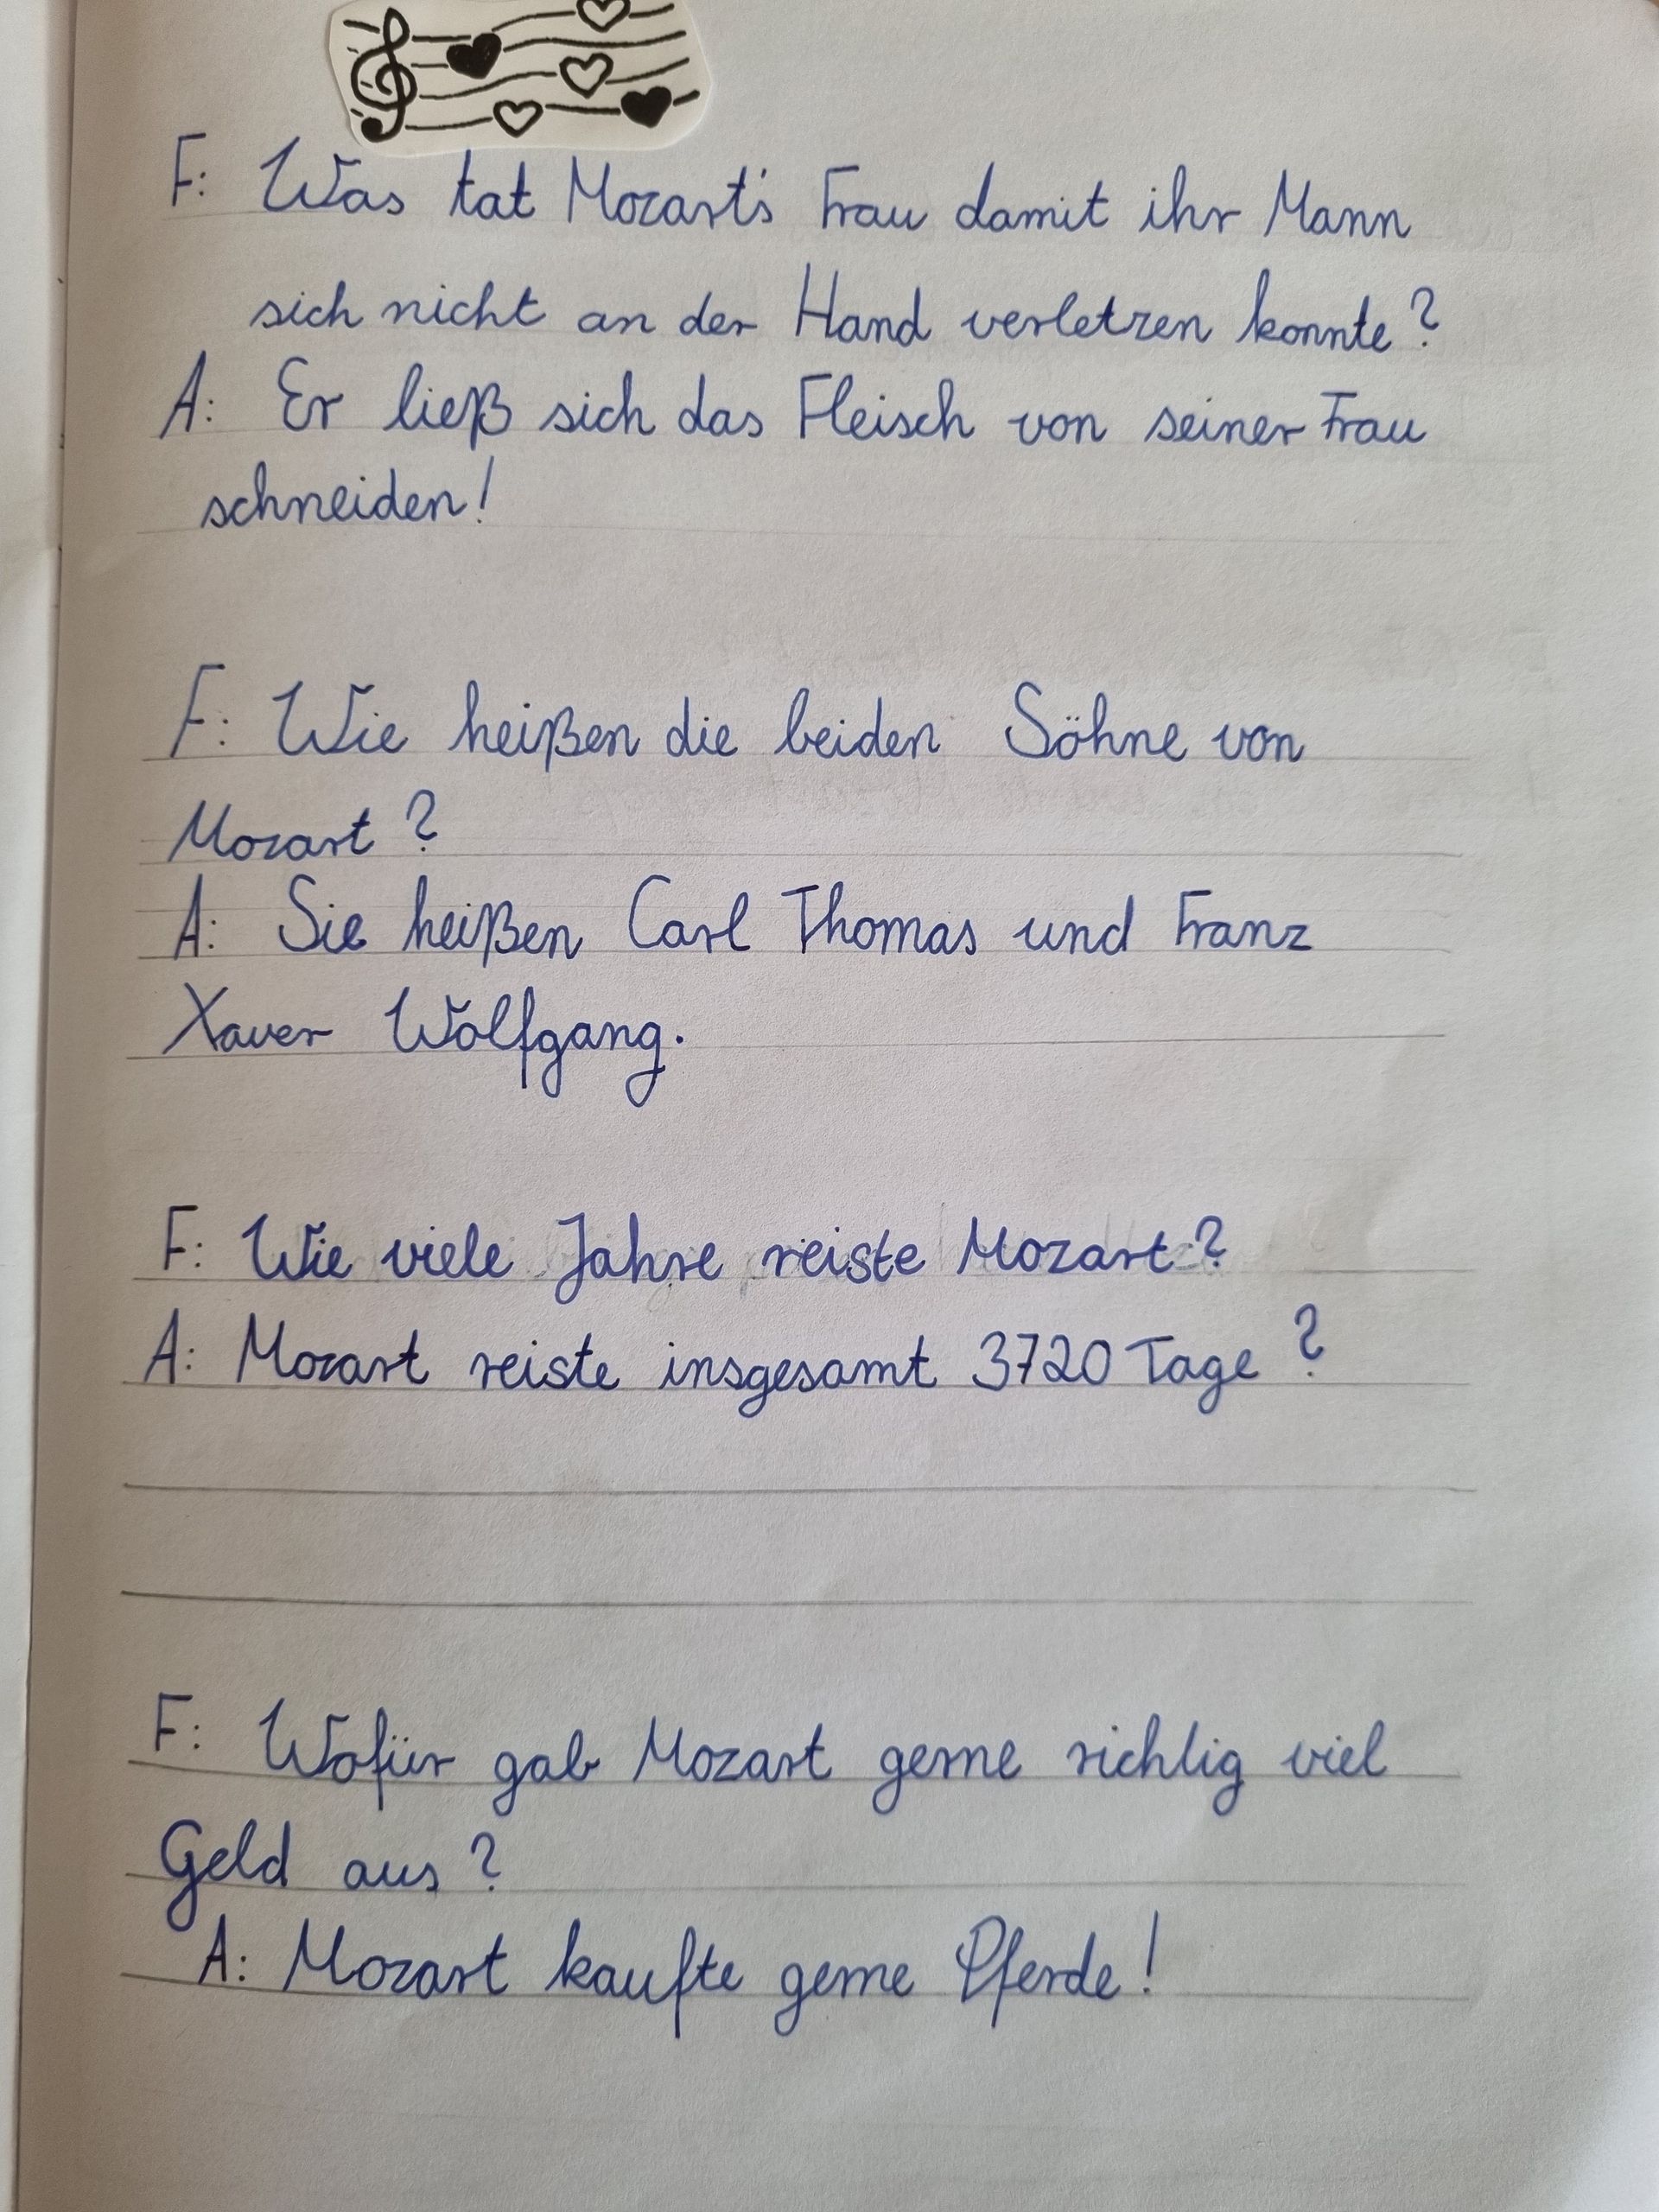 F: Was tat Mozart's Frau damit ihr Mann
sich nicht an der Hand verletzen konnte?
A: Er ließ sich das Fleisch von seiner Frau
schneiden!
F: Wie heißen die beiden Söhne von
Mozart?
A: Sie heißen Carl Thomas und Franz
Xaver Wolfgang.
F: Wie viele Jahre reiste Mozart?
A: Mozart reiste insgesamt 3720 Tage?
F: Wofür gab Mozart gerne richtig viel
Geld aus?
A: Mozart kaufte gerne Pferde!